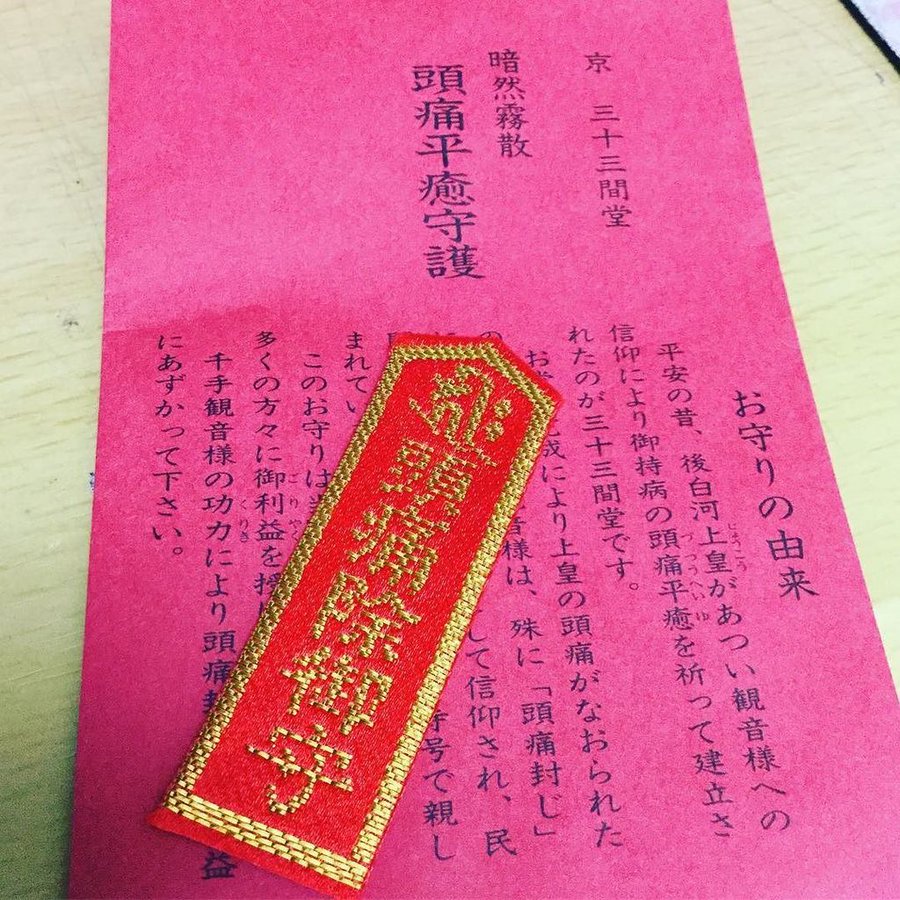 京 三十三間堂
暗然霧散
頭痛平癒守護
お守りの由来
平安の昔、後白河上皇があつい観音様への
信仰により御持病の頭痛平癒を祈って建立さ
れたのが三十三間堂です。
成により上皇の頭痛がなおられた
音様は、殊に「頭痛封じ」
の
して信仰され、民
寺号で親し
まれてい
このお守りは
多くの方々に御利益を授
千手観音様の功力により頭痛
益
にあずかって下さい。
頭痛除御守